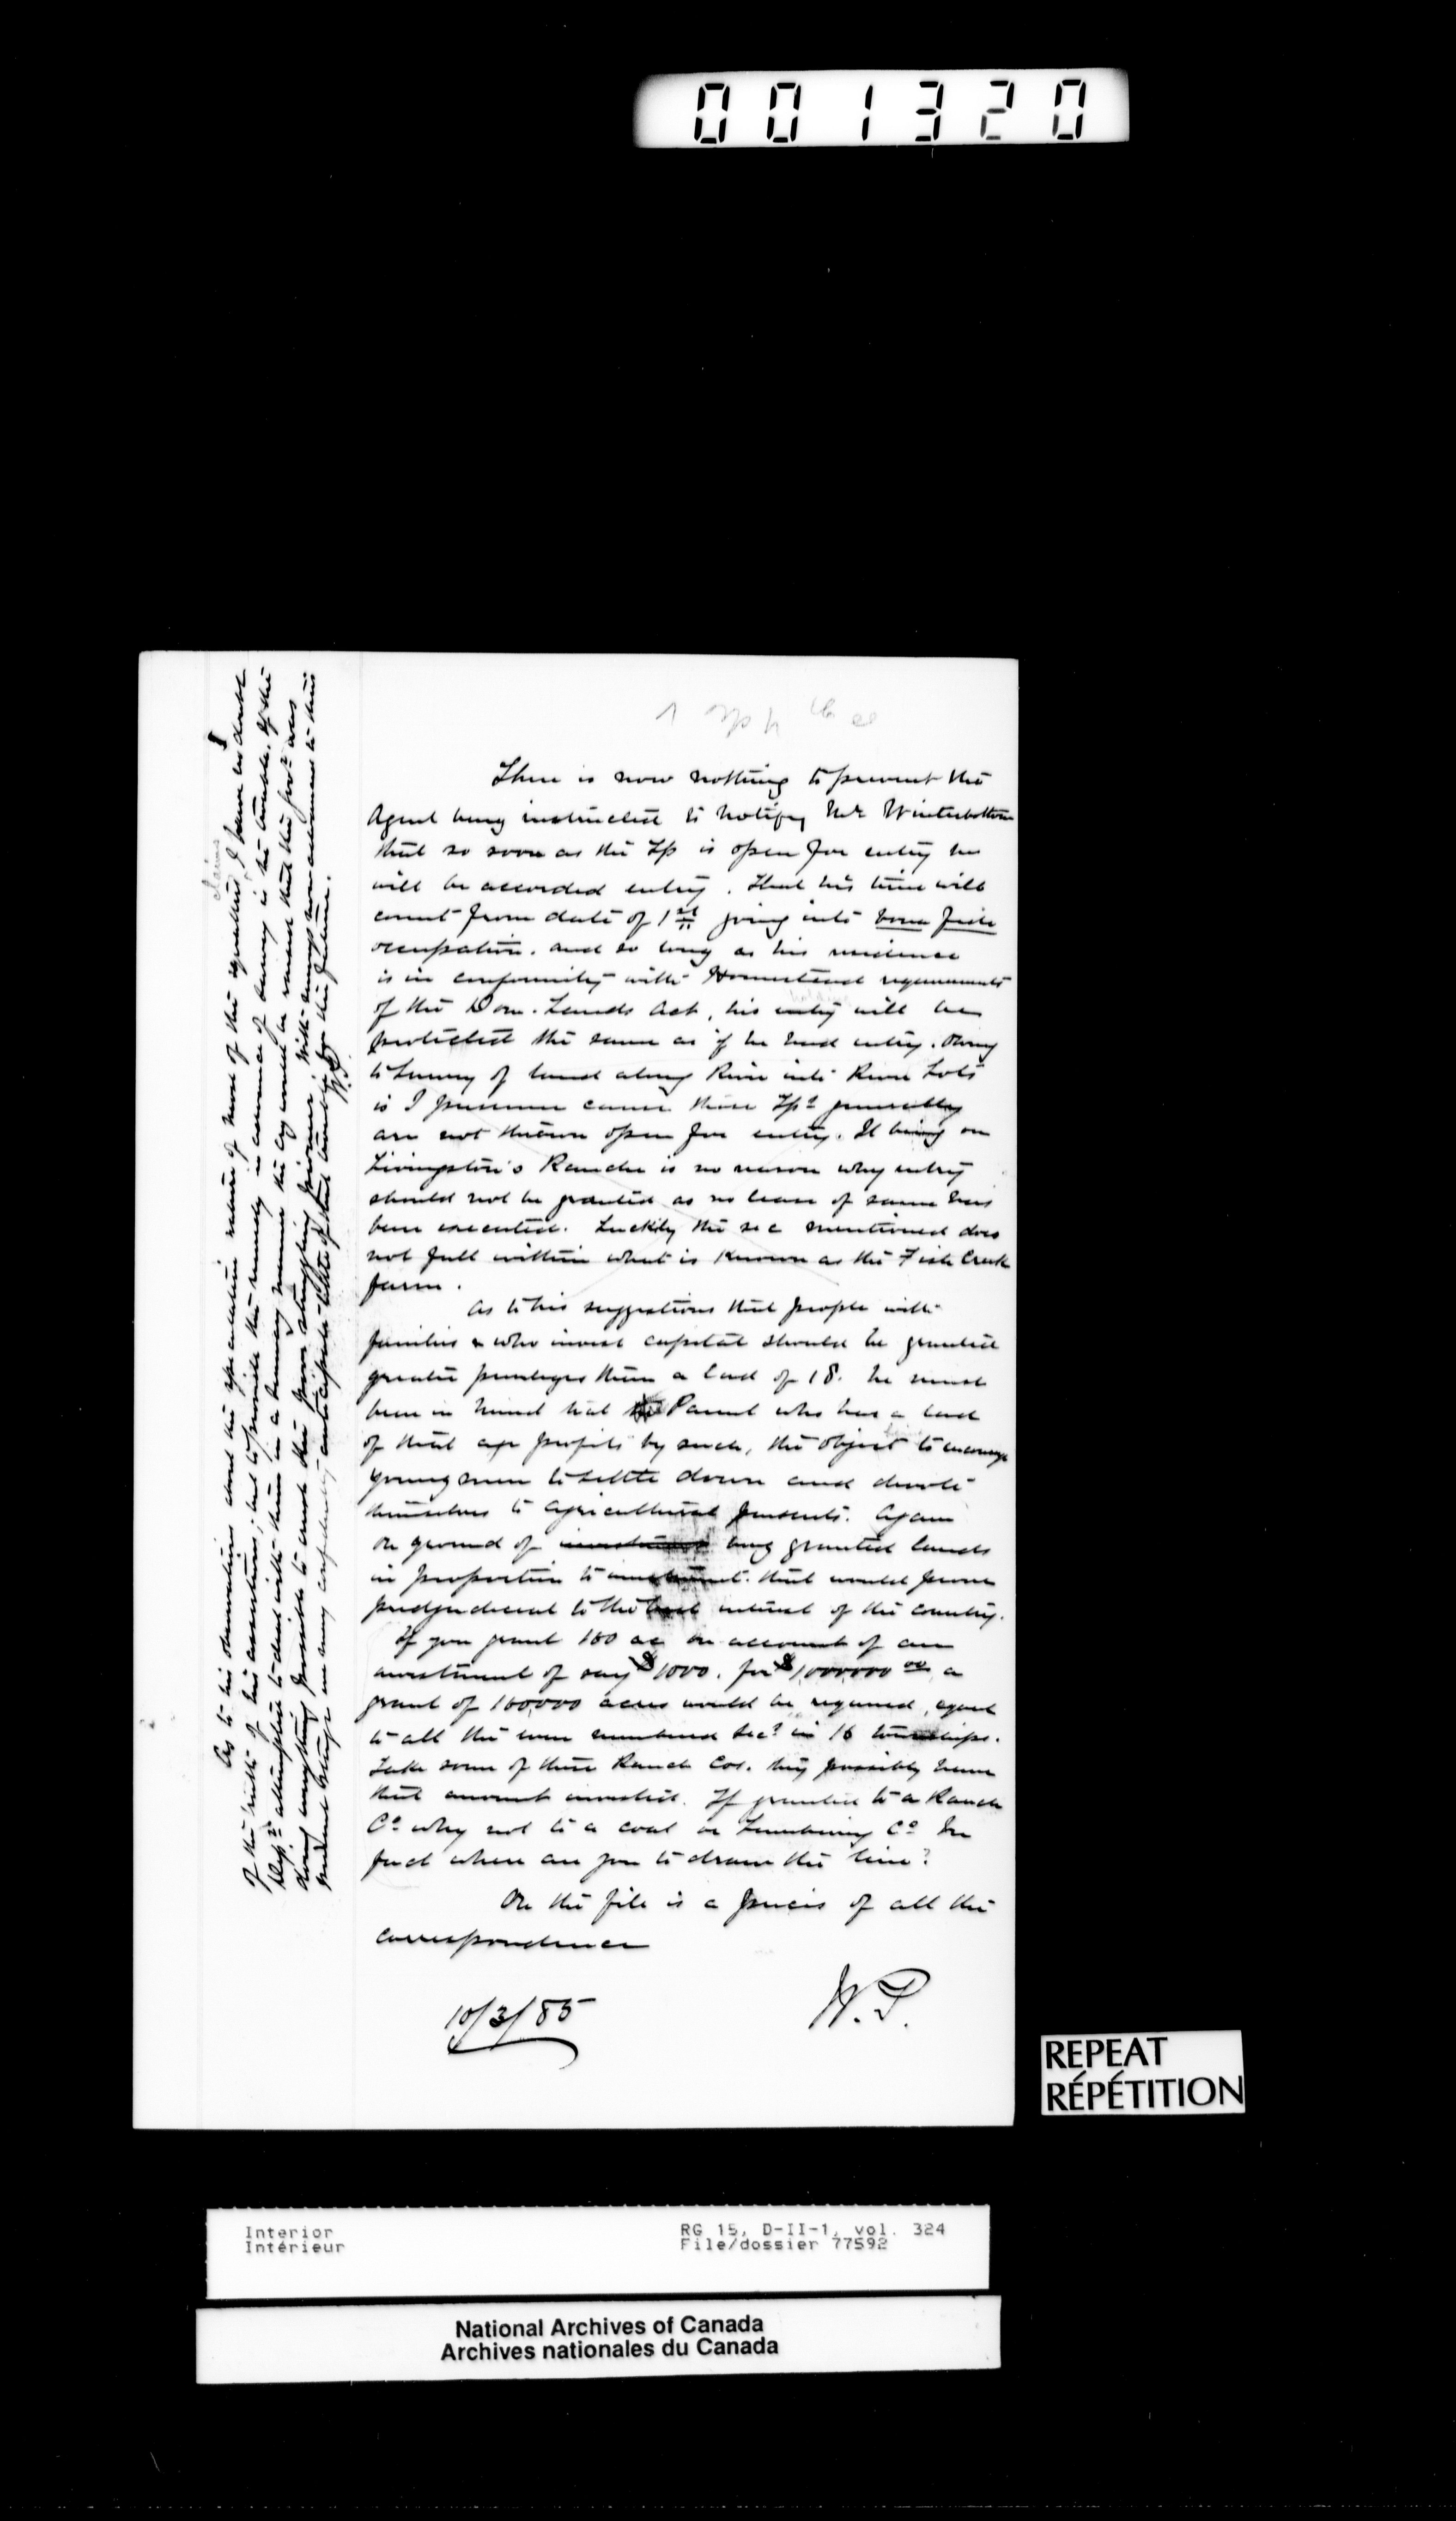 001320
There is now nothing to prevent the
Agent being instructed to notify Mr Winterbottom
that so soon as the Tp is open for entry he
will be accorded entry. That his time will
count from date of 1st going into bona fide
occupation. and so long as his residence
is in conformity with Homestead requirements
of the Dom. Lands Act, his entry will be
protected the same as if he had entry. Owing
to Survey of land along River into River Lots
is I presume cause these Tps generally
are not thrown open for entry. It being on
Livingston's Ranche is no reason why entry
should not be granted as no lease of same has
been executed. Luckily the sec mentioned does
not fall within what is known as the Fish Creek
farm.
As to his suggestions that people with
families & who invest capital should be granted
greater privileges than a lad of 18. he must
bear in mind that Parent who has a lad
of that age profits by such, the object to encourage
young men to settle down and devote
themselves to agricultural pursuits. Again
on ground of being granted lands
in proportion to investment. that would prove
predjudicial to the best interest of the country.
If you grant 160 ac on account of an
investment of say $1000. for $1,000,000 00 a
grant of 160,000 acres would be required, equal
to all the even numbered Secs in 16 townships.
Take some of these Ranch Cos. they possibly have
that amount invested. If granted to a Ranche
Co why not to a coal or Lumbering Co In
fact where are you to draw the line?
On the file is a precis of all the
correspondence
10/3/85
W.P.
claims
As to his observations about the speculative nature of most of the squatters, I have no doubt
of the truth of his assertions; but to provide the remedy in advance of survey is the trouble. If the
Dept attempted to deal with them in a summary manner the cry would be raised that the Govt was
doing anything possible to crush the poor struggling pioneer. With surveys now advanced to this
present stage we may confidently anticipate little of that trouble in the future.
W.P.
REPEAT
RÉPÉTITION
Interior
Intérieur
RG 15, D-II-1, vol. 324
File/dossier 77592
National Archives of Canada
Archives nationales du Canada